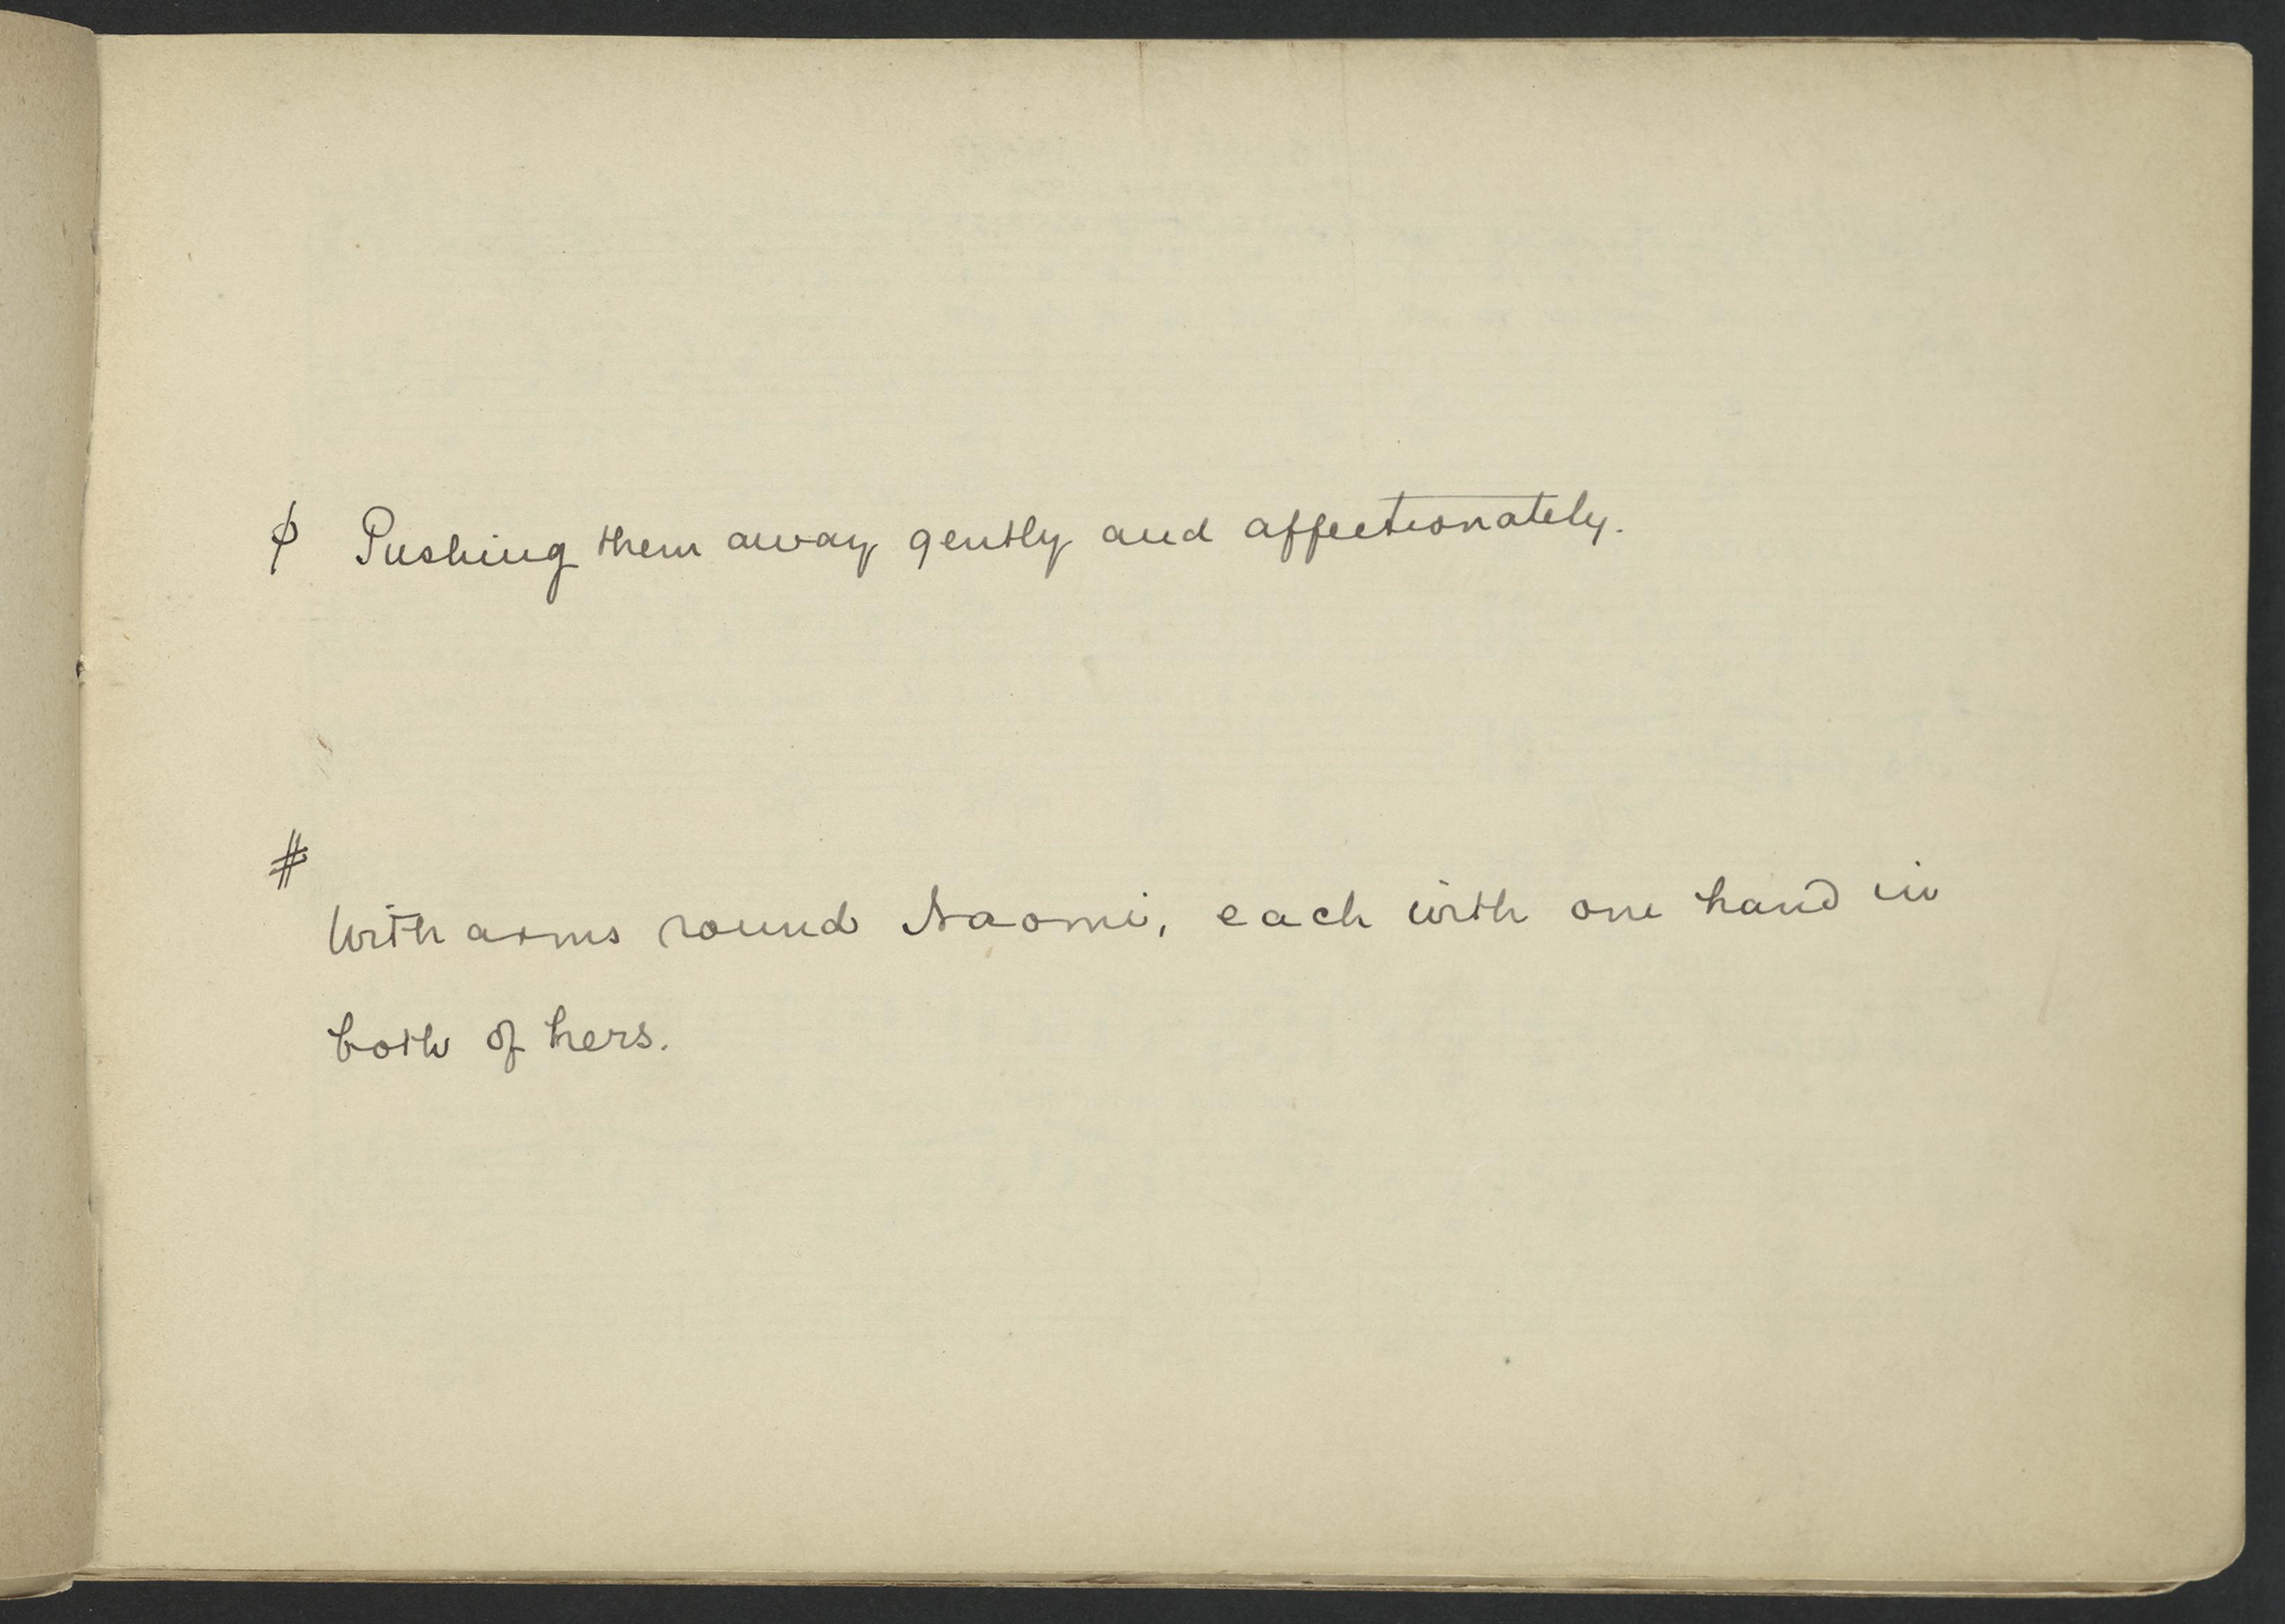 ϕ Pushing them away gently and affectionately.
#
With arms round Naomi, each with one hand in
both of hers.